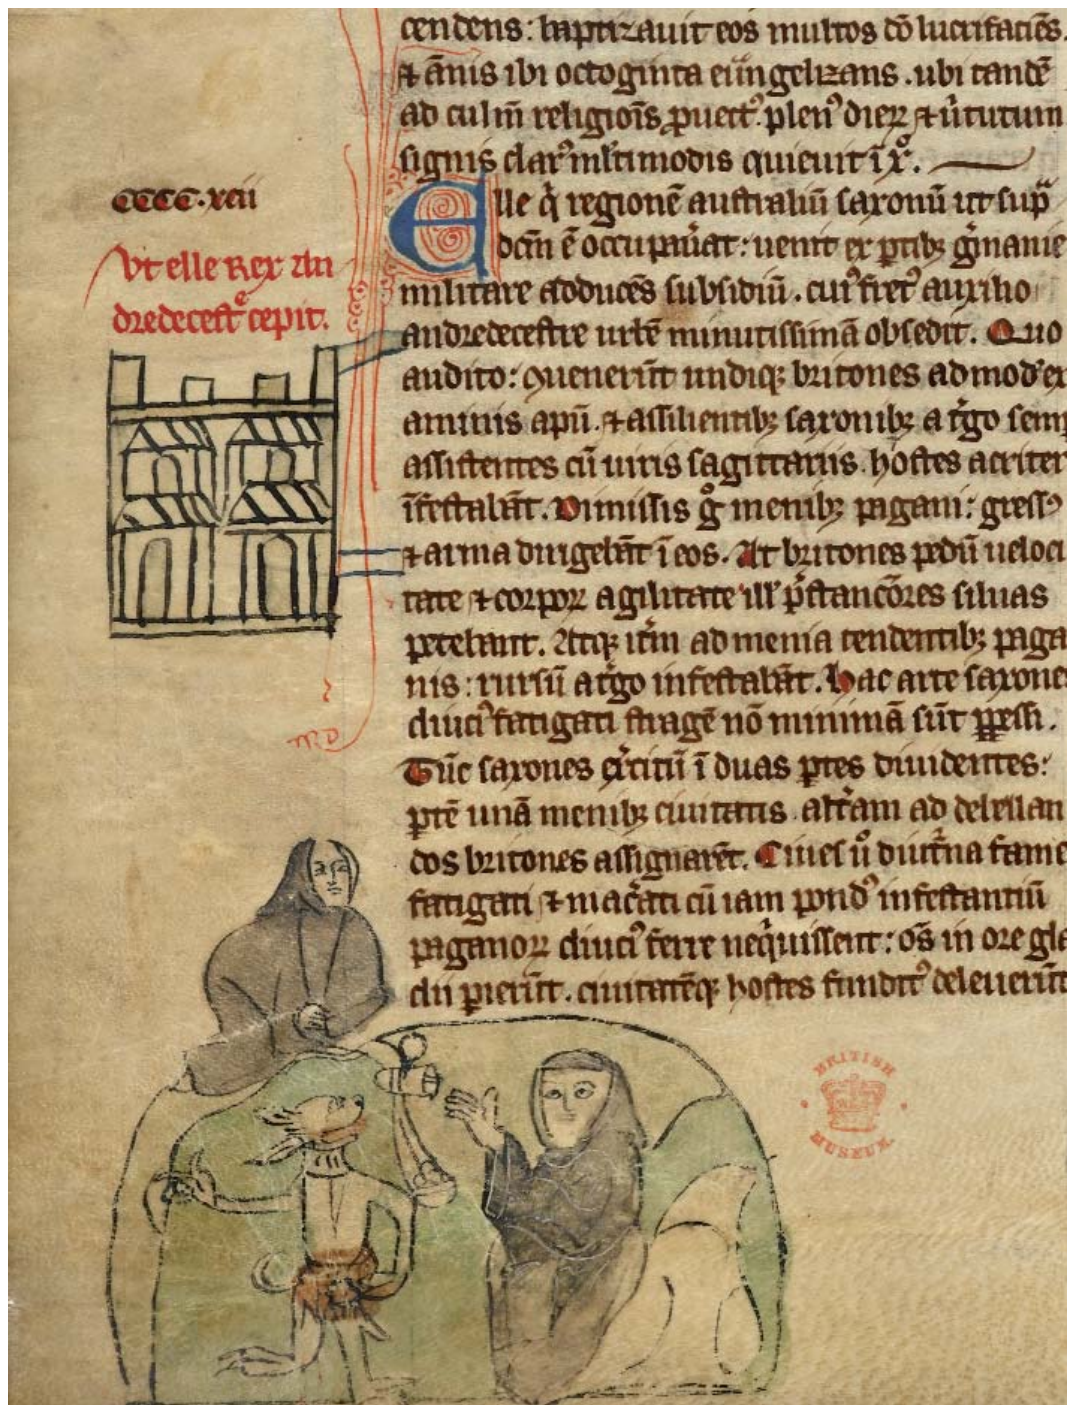 cendens: baptizauit eos multos dō lucrifaciēs.
⁊ ānis ibi octoginta euāngelizans . ubi tandē
ad culm̄ religiōis ꝓuectꝰ. plenꝰ dieꝝ ⁊ ūtutum
signis clarꝰ ml̄timodis quieuit ī xͦ.
CCCC.xcii
Elle q̇ regionē australiū saxonū ut sup̄
dc̄m ē occupauˀat: uenit ex ꝑtibꝫ gˀmanie
Vt elle Rex An
dredecestˀe cepit.
militare adducēs subsidiū . cuiꝰ fretꝰ auxilio
andredecestre urbē minutissimā obsedit. Quo
audito: ꝯuenerūt undiqꝫ britones ad modˀ ex
aminis apū . ⁊ assilientibꝫ saxonibꝫ a tˀgo semꝑ
assistentes cū uiris sagittariis . hostes acriter
īfestabāt. Dimissis gͦ menibꝫ pagani: gressꝰ
⁊ arma dirigebāt ī eos. At britones pedū ueloci
tate ⁊ corpoꝝ agilitate ill̄ p̄stancōres siluas
petebant. Atqꝫ itˀm ad menia tendentibꝫ paga
nis: rursū a tˀgo infestabāt. Hac arte saxones
diuciꝰ fatigati stragē nō minimā sūt ꝑpessi.
Tūc saxones exˀcitū ī duas ꝑtes diuidentes:
ꝑtē unā menibꝫ ciuitatis . altˀam ad debellan
dos britones assignarēt. Ciues uͦ diutˀna fame
fatigati ⁊ macˀati cū iam pondꝰ infestantiū
paganoꝝ diuciꝰ ferre neqˀuissent: oſ̄ in ore gla
dii ꝑierūt . ciuitatēqꝫ hostes funditꝰ deleuerūt
BRITISH
MUSEUM